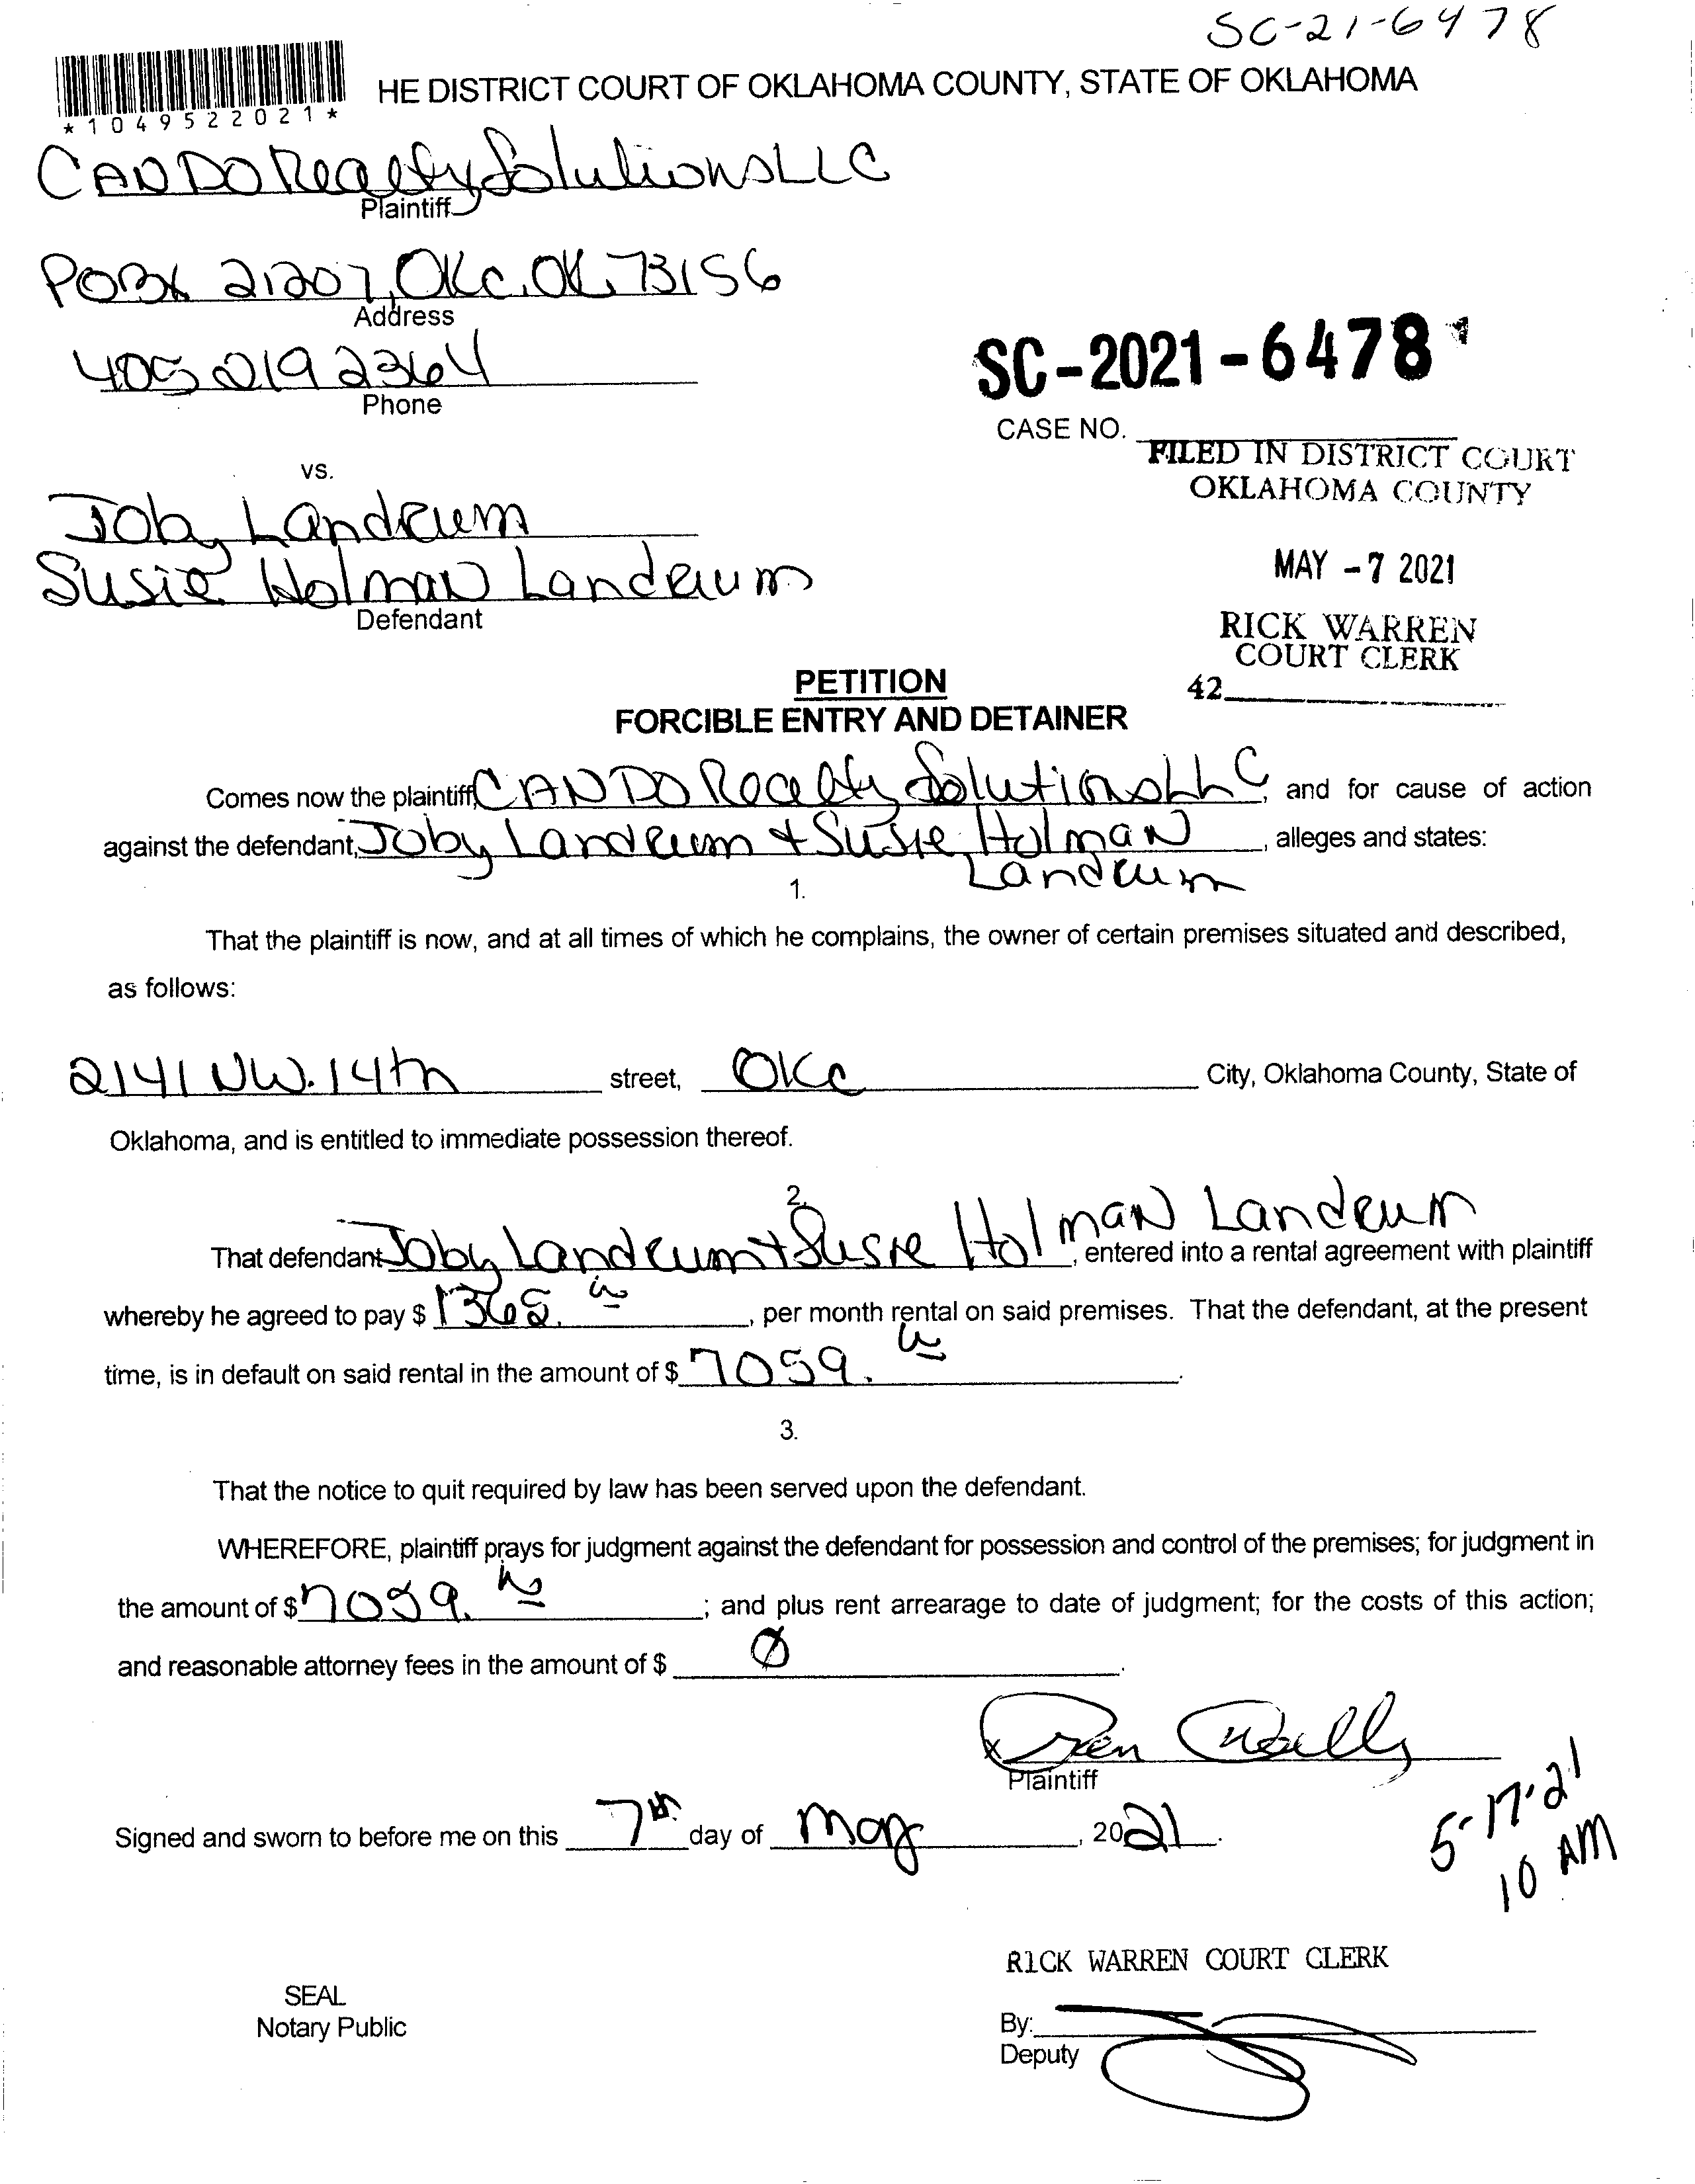 SC-21-6478
HE DISTRICT COURT OF OKLAHOMA COUNTY, STATE OF OKLAHOMA
*1049522021*
CANDO Realty Solutions LLC
Plaintiff
PO Bx 21207, OKC, OK, 73156
Address
405 219 2364
Phone
SC-2021-6478
CASE NO.
FILED IN DISTRICT COURT
OKLAHOMA COUNTY
vs.
Joby Landrum
MAY -7 2021
Susie Holman Landrum
Defendant
RICK WARREN
COURT CLERK
42
PETITION
FORCIBLE ENTRY AND DETAINER
Comes now the plaintiff, CANDO Realty Solutions LLC, and for cause of action
against the defendant, Joby Landrum + Susie Holman, alleges and states:
Landrum
1.
That the plaintiff is now, and at all times of which he complains, the owner of certain premises situated and described,
as follows:
2141 NW. 14th street, OKC City, Oklahoma County, State of
Oklahoma, and is entitled to immediate possession thereof.
2.
That defendant Joby Landrum + Susie Holman Landrum, entered into a rental agreement with plaintiff
whereby he agreed to pay $ 1365. , per month rental on said premises. That the defendant, at the present
time, is in default on said rental in the amount of $ 7059. .
3.
That the notice to quit required by law has been served upon the defendant.
WHEREFORE, plaintiff prays for judgment against the defendant for possession and control of the premises; for judgment in
the amount of $ 7059. ; and plus rent arrearage to date of judgment; for the costs of this action;
and reasonable attorney fees in the amount of $ Ø .
x
Plaintiff
Signed and sworn to before me on this 7th day of May, 2021.
5-17-21
10 AM
RICK WARREN COURT CLERK
SEAL
Notary Public
By:
Deputy